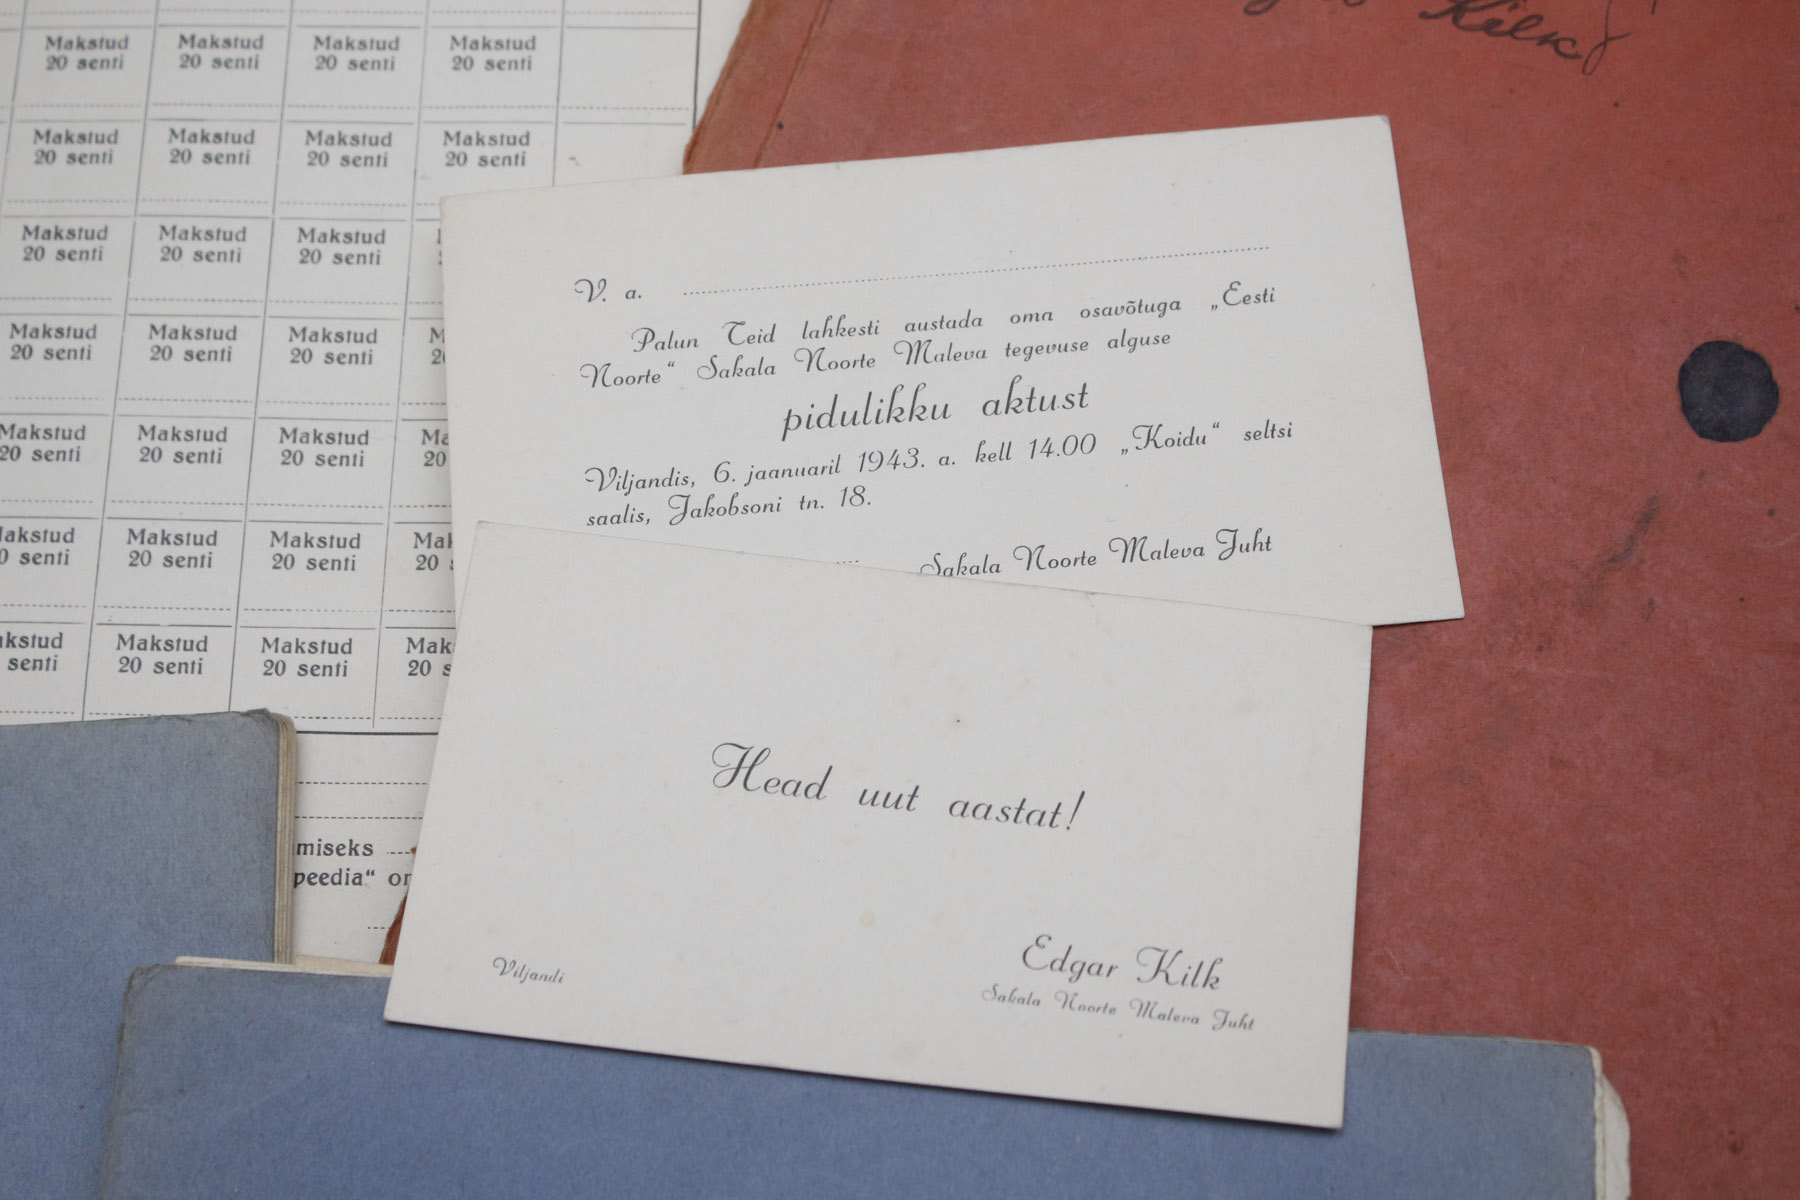 Kilk
Makstud Makstud Makstud Makstud
20 senti 20 senti 20 senti 20 senti
Makstud Makstud Makstud Makstud
20 senti 20 senti 20 senti 20 senti
Makstud Makstud Makstud
20 senti 20 senti 20 senti
Makstud Makstud Makstud
20 senti 20 senti 20 senti
Makstud Makstud Makstud
20 senti 20 senti 20 senti
Makstud Makstud
senti 20 senti 20 senti 20
Makstud Makstud
senti 20 senti 20 senti 20
V. a.
Palun Teid lahkesti austada oma osavõtuga „Eesti
Noorte“ Sakala Noorte Maleva tegevuse alguse
pidulikku aktust
Viljandis, 6. jaanuaril 1943. a. kell 14.00 „Koidu“ seltsi
saalis, Jakobsoni tn. 18.
Sakala Noorte Maleva Juht
Head uut aastat!
Edgar Kilk
Viljandi Sakala Noorte Maleva Juht
miseks
peedia“